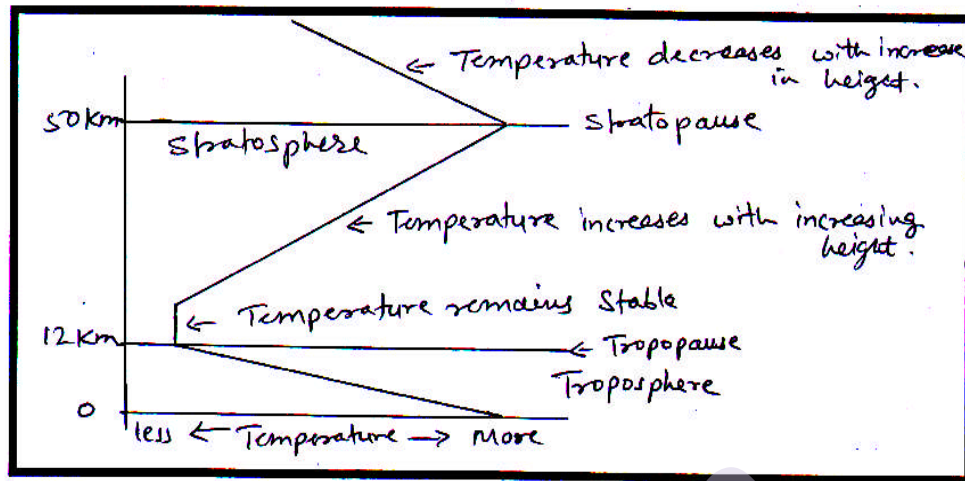 ← Temperature decreases with increase
in height.
50km
Stratopause
Stratosphere
← Temperature increases with increasing
height.
← Temperature remains Stable
12km
← Tropopause
Troposphere
0
less ← Temperature → More